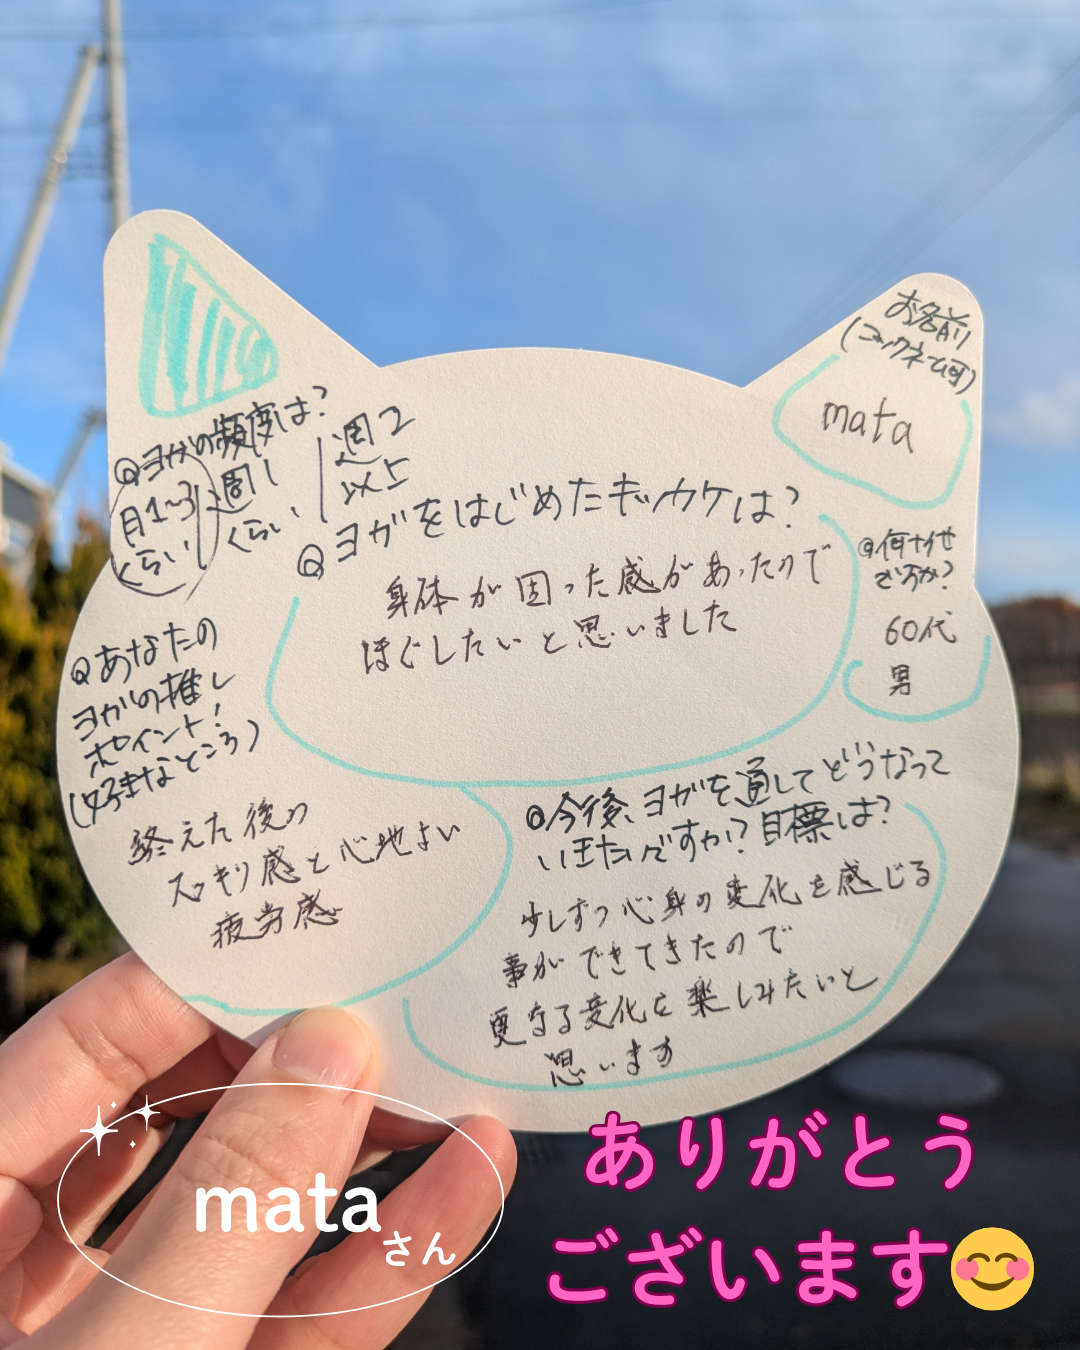 お名前
(ニックネーム可)
mata
Qヨガの頻度は?
月1~3くらい | 週1くらい | 週2以上
Q ヨガをはじめたキッカケは?
身体が固った感があったので
ほぐしたいと思いました
Q何十代
ですか?
60代
男
Qあなたの
ヨガの推し
ポイント!
(好きなところ)
終えた後の
スッキリ感と心地よい
疲労感
Q今後、ヨガを通してどうなって
いきたいですか?目標は?
少しずつ心身の変化を感じる
事ができてきたので
更なる変化を楽しみたいと
思います
mata
さん
ありがとう
ございます😊